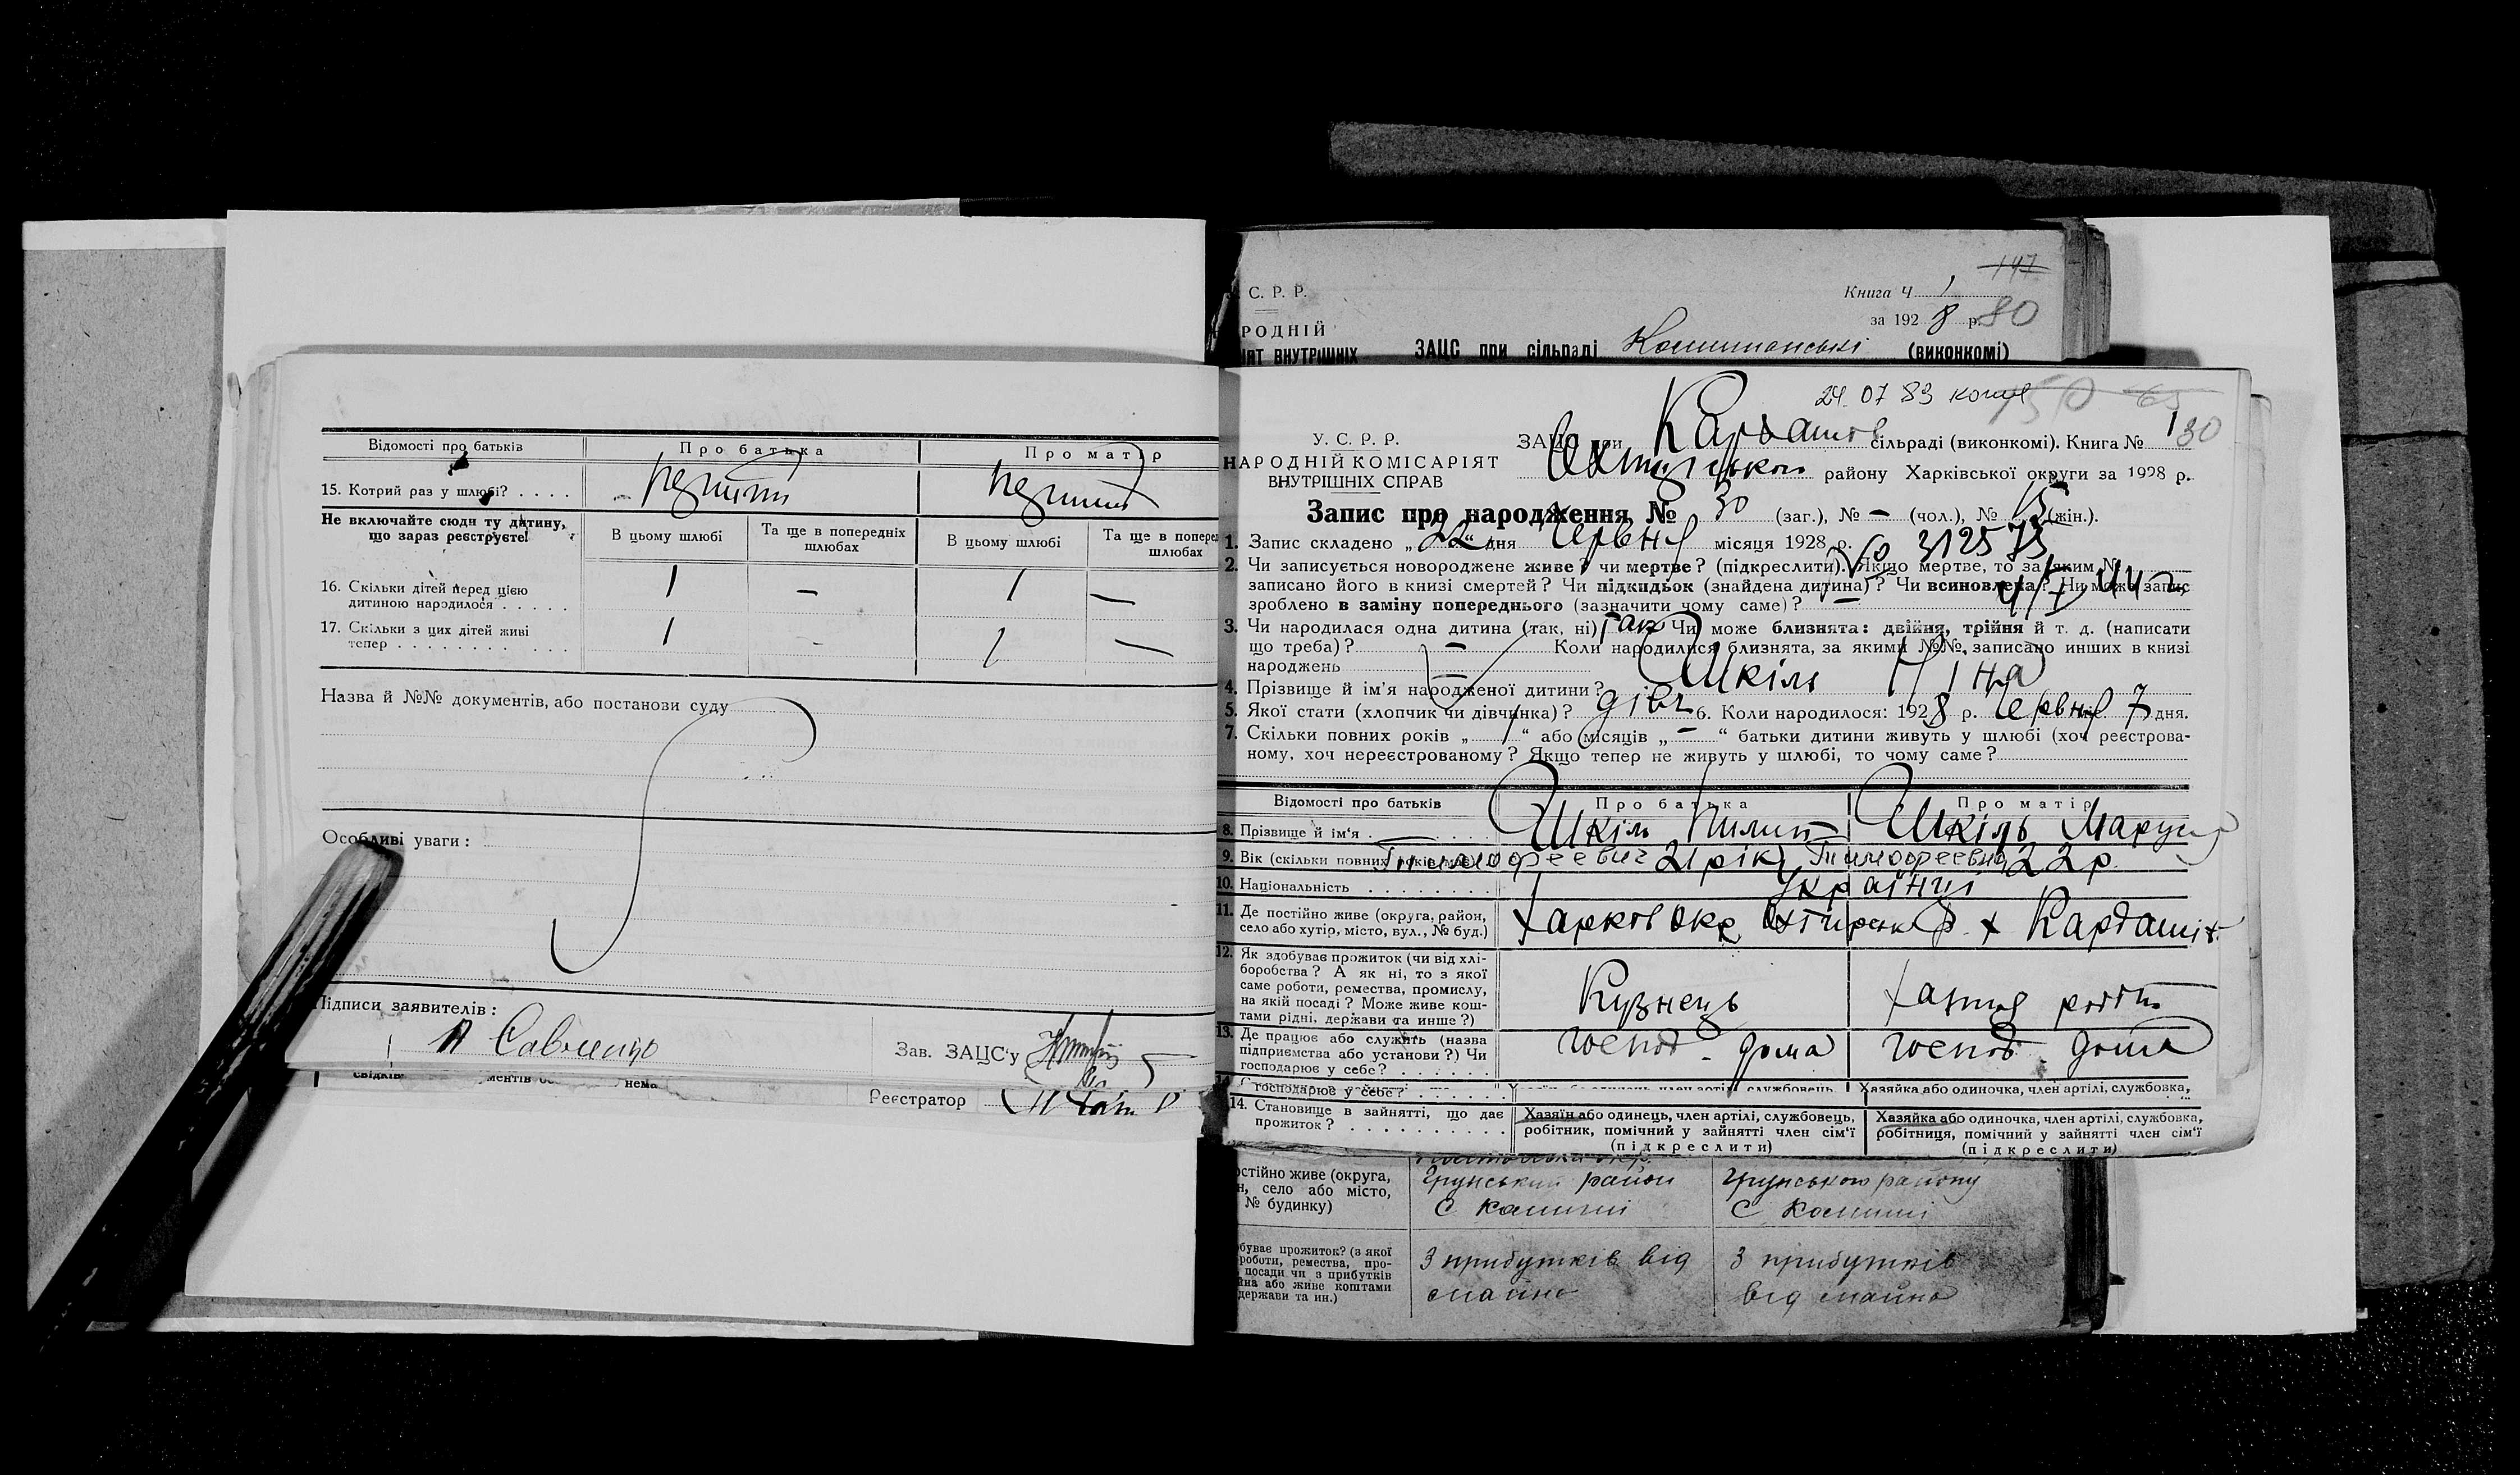 Відомості про батьків
Про батька
Про матір
15. Котрий раз у шлюбі? . . . .
Не включайте сюди ту дитину,
що зараз реєструєте!
В цьому шлюбі
Та ще в попередніх
шлюбах
В цьому шлюбі
Та ще в поперед
шлюбах
16. Скільки дітей перед цією
дитиною народилося . . . . .
1 — 1 —
17. Скільки з цих дітей живі
тепер . . . . . . . . . . .
1 - 1 —
Назва й №№ документів, або постанови суду
Особливі уваги:
Підписи заявителів:
Савченко
Зав. ЗАЦС'у
нема
Реєстратор
С. Р. Р.
Книга Ч. 1
147
за 1928 р. 80
РОДНІЙ
ІЯТ ВНУТРІШНІХ
ЗАЦС при сільраді (виконкомі)
24.07 83 копія
У. С. Р. Р.
НАРОДНІЙ КОМІСАРІЯТ
ВНУТРІШНІХ СПРАВ
ЗАЦС при Кардашов сільраді (виконкомі). Книга № 1
30
району Харківської округи за 1928 р.
Запис про народження № 30 (заг.), № — (чол.), № 15 (жін.).
1. Запис складено „22“ дня Червня місяця 1928 р.
312575
2. Чи записується новороджене живе? чи мертве? (підкреслити). Якщо мертве, то за яким №
записано його в книзі смертей? Чи підкидьок (знайдена дитина)? Чи всиновлена? Чи може запис
зроблено в заміну попереднього (зазначити чому саме)? —
3. Чи народилася одна дитина (так, ні) так Чи може близнята: двійня, трійня й т. д. (написати
що треба)? — Коли народилися близнята, за якими №№ записано инших в книзі
народжень —
4. Прізвище й ім'я народженої дитини? Шкіль Ніна
5. Якої стати (хлопчик чи дівчинка)? дівч 6. Коли народилося: 1928 р. Червня 7 дня.
7. Скільки повних років „1“ або місяців „—“ батьки дитини живуть у шлюбі (хоч реєстрова-
ному, хоч нереєстрованому? Якщо тепер не живуть у шлюбі, то чому саме?
Відомості про батьків
Про батька
Про матір
8. Прізвище й ім'я . Шкіль Пилип Шкіль Маруся
9. Вік (скільки повних років має) Тимофеевич 21 рік Тимофеевна 22 р
10. Національність . . . . . . . . українці
11. Де постійно живе (округа, район,
село або хутір, місто, вул., № буд.)
Харков Окр Охтирськ Р. х Кардашів
12. Як здобуває прожиток (чи від хлі-
боробства? А як ні, то з якої
саме роботи, ремества, промислу,
на якій посаді? Може живе кош-
тами рідні, держави та инше?)
Кузнець
13. Де працює або служить (назва
підприємства або установи?) Чи
господарює у себе? . . . . . .
господ - дома
господ - дома
господарює у себе? . . . . . .
Хазяйка або одиночка, член артілі, службовка,
14. Становище в зайнятті, що дає
прожиток? . . . . . . . . . .
Хазяїн або одинець, член артілі, службовець,
робітник, помічний у зайнятті член сім'ї
(підкреслити)
Хазяйка або одиночка, член артілі, службовка,
робітниця, помічний у зайнятті член сім'ї
(підкреслити)
остійно живе (округа,
н, село або місто,
№ будинку)
Грунський район
Грунського району
буває прожиток? (з якої
роботи, ремества, про-
посади чи з прибутків
йна або живе коштами
держави та ин.)
З прибутків від
майна
З прибутків
від майна